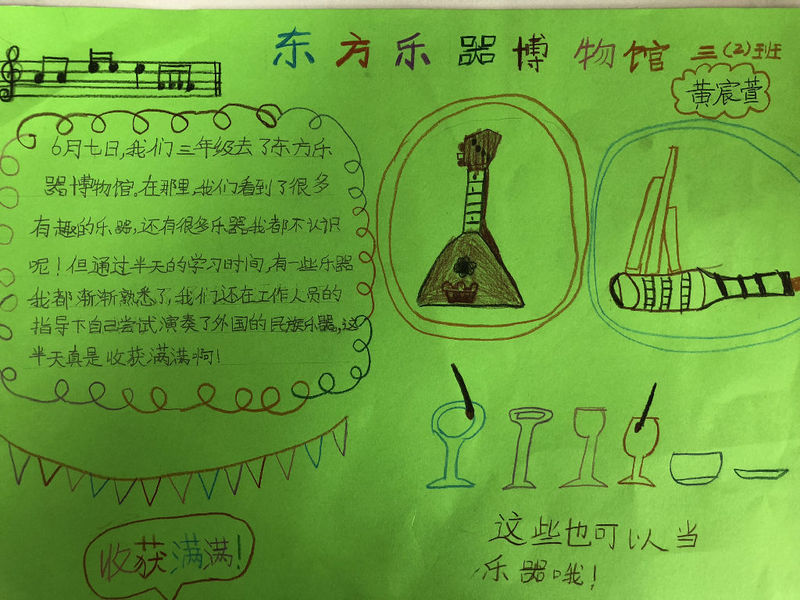 东方乐器博物馆 三(2)班
黄宸萱
6月七日,我们三年级去了东方乐
器博物馆。在那里,我们看到了很多
有趣的乐器,还有很多乐器我都不认识
呢!但通过半天的学习时间,有一些乐器
我都渐渐熟悉了,我们还在工作人员的
指导下自己尝试演奏了外国的民族乐器,这
半天真是收获满满啊!
收获满满!
这些也可以当
乐器哦!